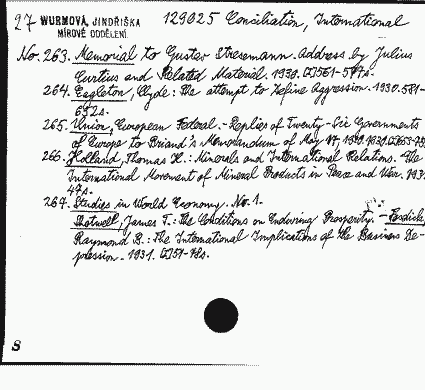 27 WURMOVÁ, JINDŘIŠKA 129025 Conciliation, International
MÍROVÉ ODDĚLENÍ.
No. 263. Memorial to Gustav Stresemann. Address by Julius
Curtius and Related Material. 1930. 561-577s.
264. Eagleton, Clyde: The attempt to Define Aggression. 1930. 581-
652s.
265. Union, European Federal: Replies of Twenty-Six Governments
of Europe to Briand's Memorandum of May 17, 1930. 1930.
266. Holland, Thomas H.: Minerals and International Relations. The
International Movement of Mineral Products in Peace and War.
47s.
267. Studies in World Economy. No. 1.
Shotwell, James T.: The Conditions on Enduring Prosperity. - Fosdick,
Raymond B.: The International Implications of the Business De-
pression. 1931.
8